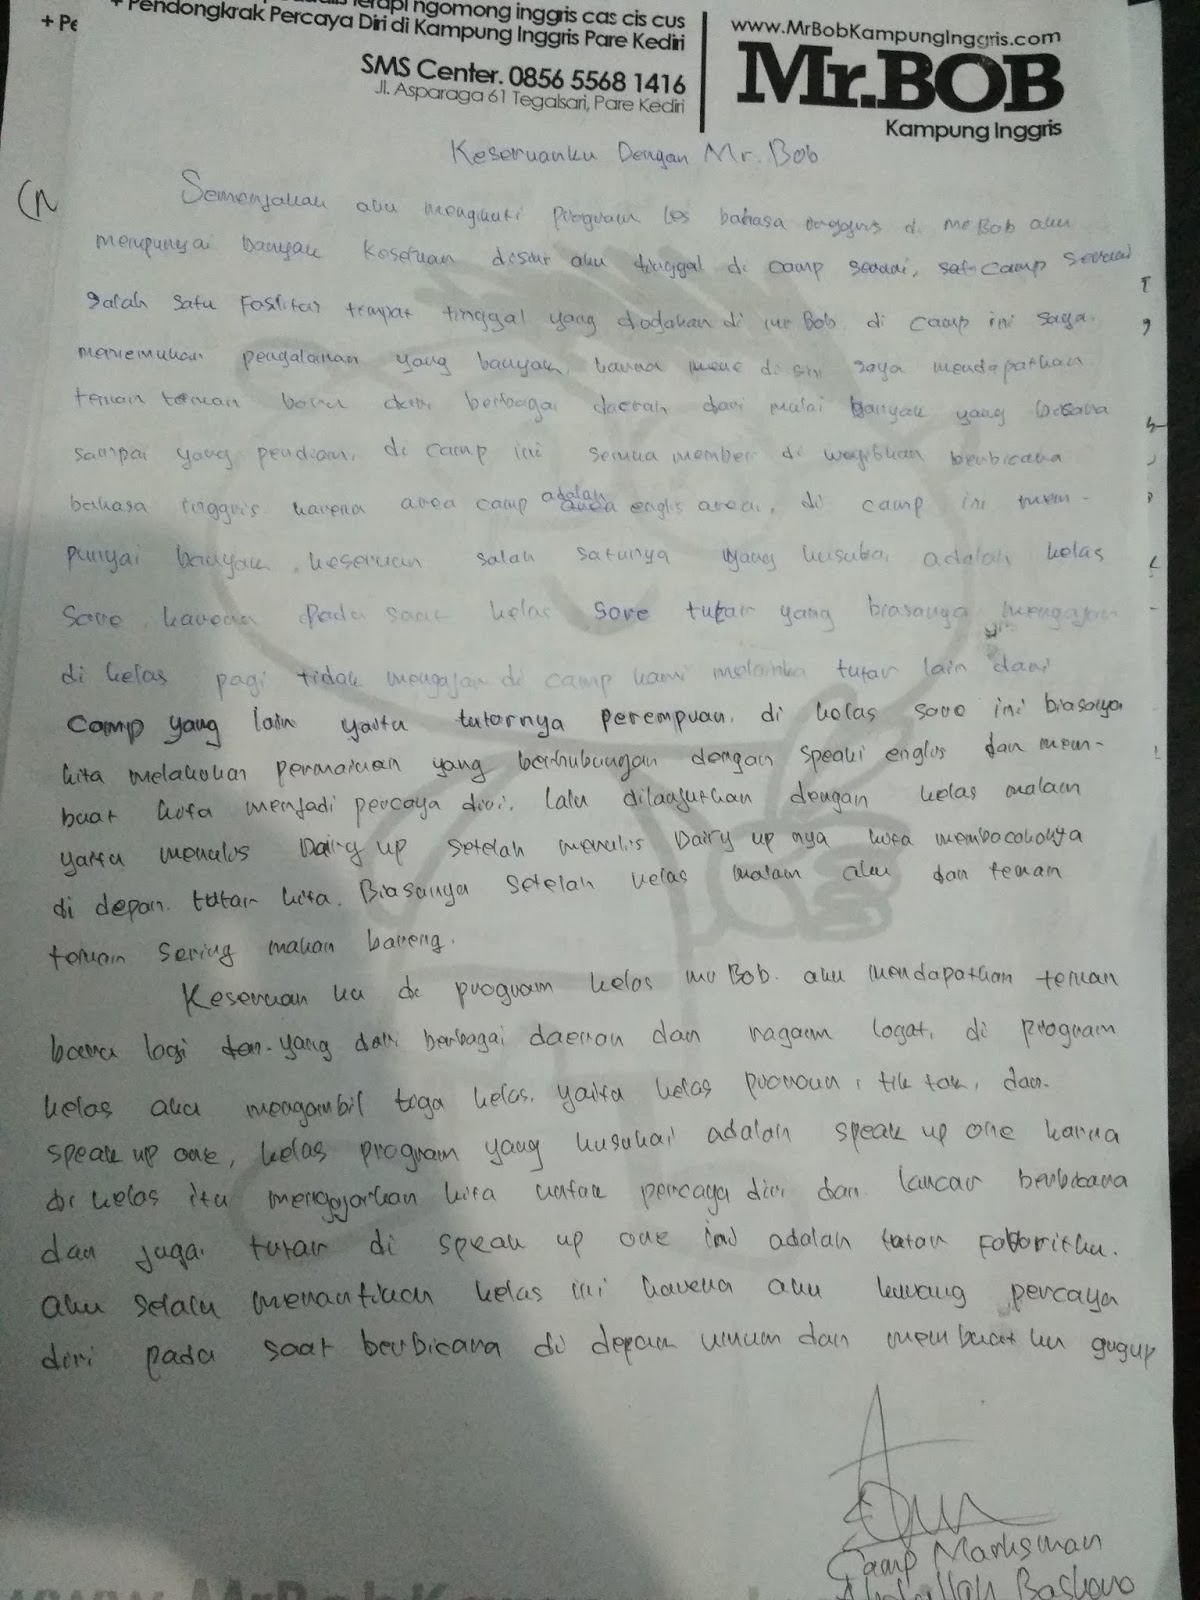 terapi ngomong inggris cas cis cus
+ Pendongkrak Percaya Diri di Kampung Inggris Pare Kediri
+ Pe
SMS Center. 0856 5568 1416
Jl. Asparaga 61 Tegalsari, Pare Kediri
www.MrBobKampungInggris.com
Mr.BOB
Kampung Inggris
Keseruanku Dengan Mr. Bob
Semenjakak aku mengikuti program les bahasa inggris di mr Bob aku
mempunyai banyak keseruan disini aku tinggal di camp camp
salah satu Fasilitas tempat tinggal yang diadakan di mr Bob. di camp ini saya
menemukan pengalaman yang banyak karna di sini saya mendapatkan
teman teman baru dari berbagai daerah dari mulai banyak yang bicara
sampai yang pendiam. di camp ini semua member di wajibkan berbicara
bahasa inggris karena area camp adalah englis area. di camp ini mem-
punyai banyak keseruan salah satunya yang kusukai adalah kelas
sore karena pada saat kelas sore tutar yang biasanya mengajar
di kelas pagi tidak mengajar di camp kami melainka tutar lain dari
camp yang lain yaitu tutornya perempuan. di kelas sore ini biasanya
kita melakukan permainan yang berhubungan dengan speaki englis dan mem-
buat kita menjadi percaya diri. lalu dilanjutkan dengan kelas malam
yaitu menulis Dairy up setelah menulis Dairy up nya kita membacakanya
di depan tutar kita. Biasanya setelah kelas malam aku dan teman
teman sering makan bareng.
Keseruan ku di program kelas mr Bob. aku mendapatkan teman
baru lagi yang dari berbagai daerah dan ragam logat. di program
kelas aku mengambil tiga kelas. yaitu kelas pronoun, tik tak, dan
speak up one, kelas program yang kusukai adalah speak up one karna
di kelas itu mengajarkan kita untuk percaya diri dan lancar berbicara
dan juga tutar di speak up one ini adalah tutar Faforitku.
aku selalu menantikan kelas ini karena aku kurang percaya
diri pada saat berbicara di depan umum dan membuat ku gugup
Camp Marksman
Baskoro